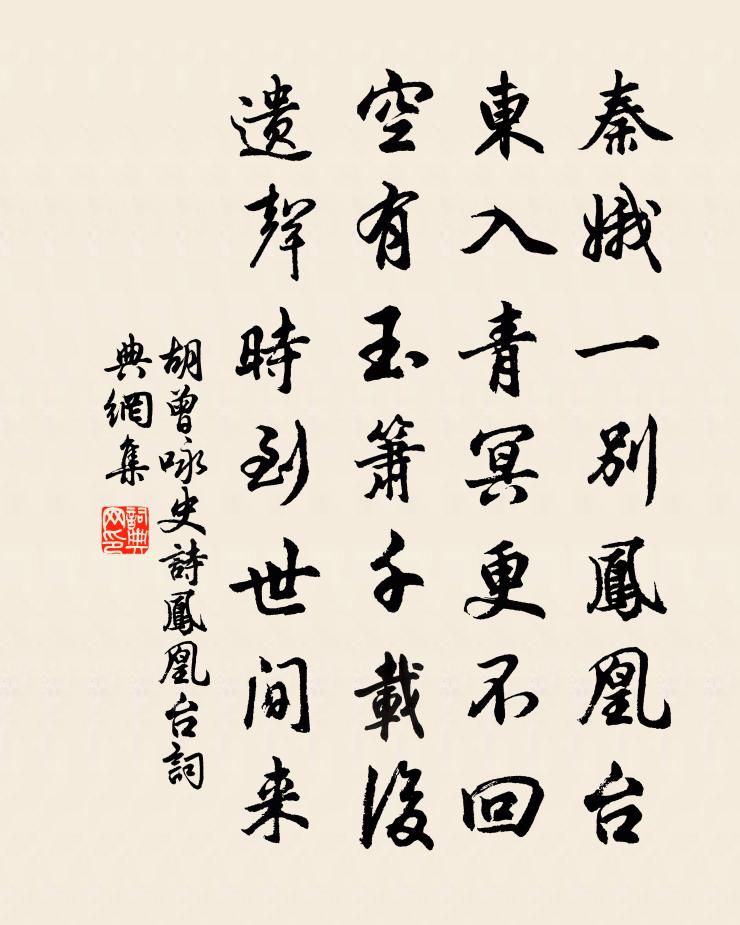 秦娥一别鳳凰台
東入青冥更不回
空有玉箫千載後
遺聲時到世间来
胡曾咏史詩鳳凰台詞
典網集
詞典
网印